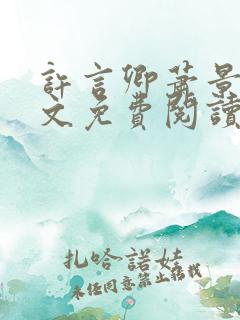 許言卿蕭景
文免費閱讀
扎哈諾娃
未經同意禁止轉載